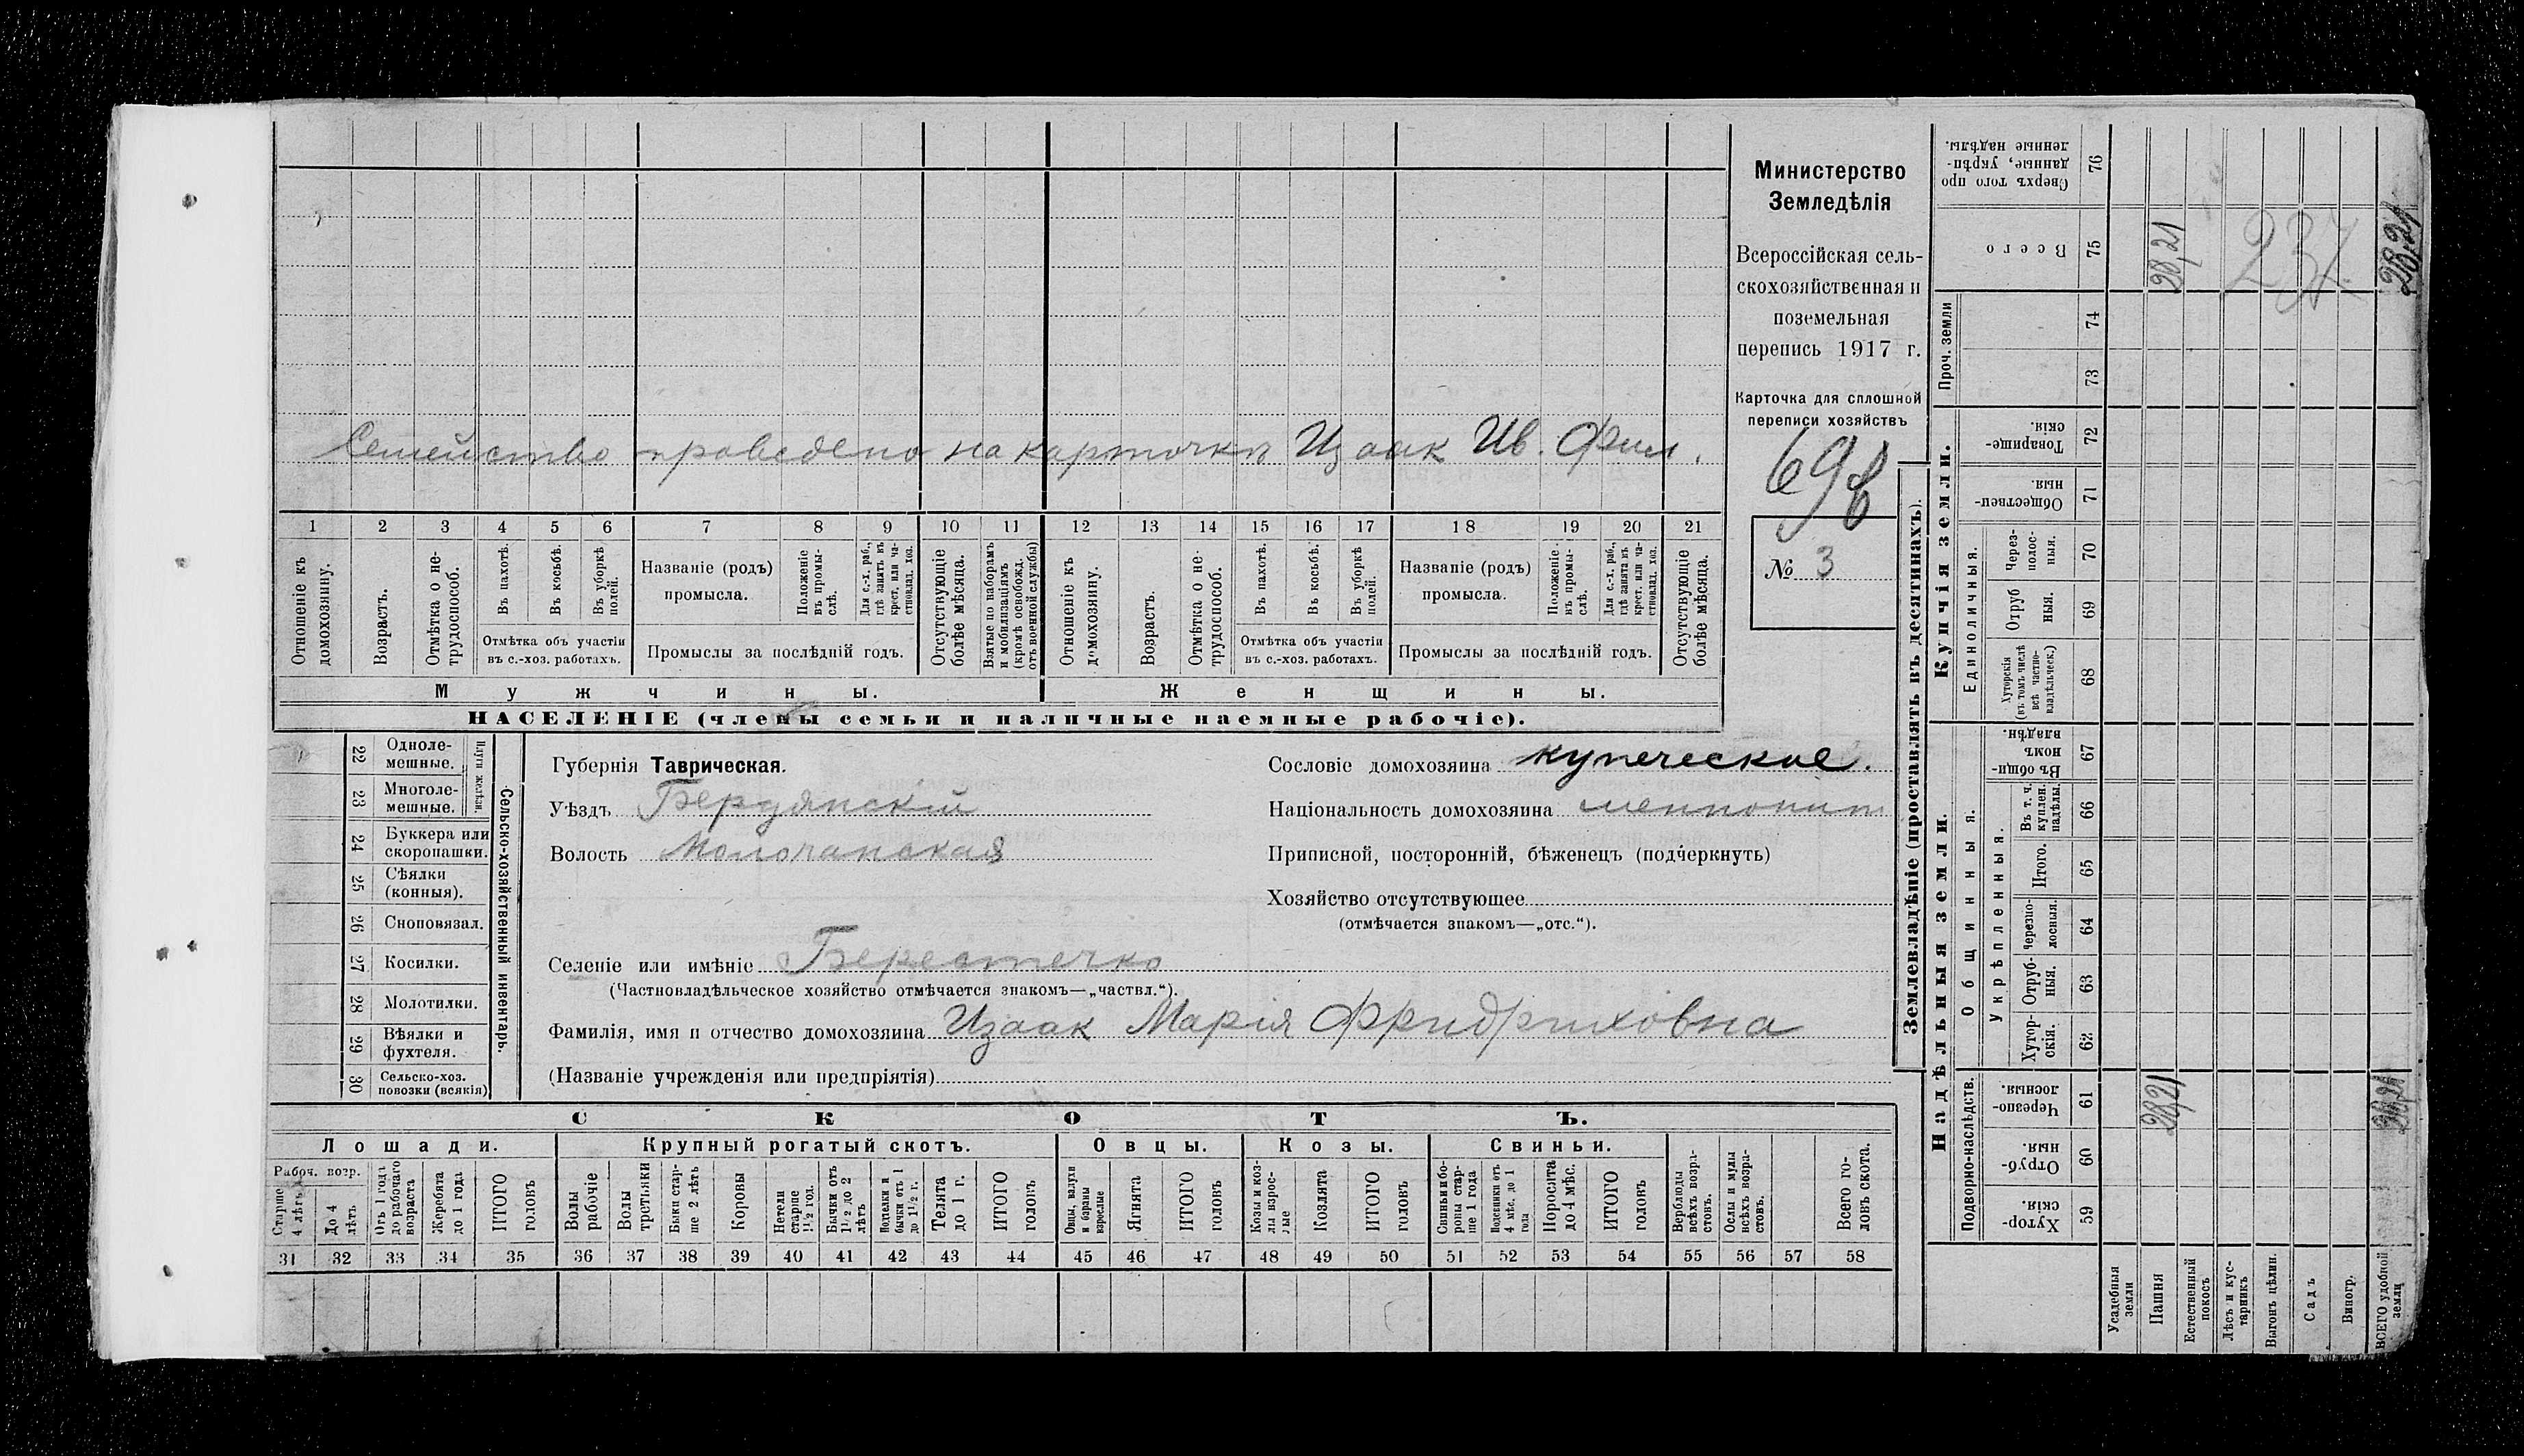 Семейство проведено на карточкѣ Изаак Ив. Фил.
1 2 3 4 5 6 7 8 9 10 11 12 13 14 15 16 17 18 19 20 21
Отношеніе къ домохозяину.
Возрастъ.
Отмѣтка о нетрудоспособ.
Въ пахотѣ.
Въ косьбѣ.
Въ уборкѣ полей.
Отмѣтка объ участіи
въ с.-хоз. работахъ.
Названіе (родъ)
промысла.
Положеніе въ промыслѣ.
Для с.-х. раб., гдѣ занятъ въ крест. или частновлад. хоз.
Промыслы за послѣдній годъ.
Отсутствующіе болѣе мѣсяца.
Взятые по наборамъ и мобилизаціямъ (кромѣ освобожд. отъ военной службы)
Отношеніе къ домохозяину.
Возрастъ.
Отмѣтка о нетрудоспособ.
Въ пахотѣ.
Въ косьбѣ.
Въ уборкѣ полей.
Отмѣтка объ участіи
въ с.-хоз. работахъ.
Названіе (родъ)
промысла.
Положеніе въ промыслѣ.
Для с.-х. раб., гдѣ занята въ крест. или частновлад. хоз.
Промыслы за послѣдній годъ.
Отсутствующіе болѣе мѣсяца.
Мужчины.
Женщины.
НАСЕЛЕНІЕ (члены семьи и наличные наемные рабочіе).
Министерство
Земледѣлія
Всероссійская сель-
скохозяйственная и
поземельная
перепись 1917 г.
Карточка для сплошной
переписи хозяйствъ
69в
№ 3
Сельско-хозяйственный инвентарь.
Плуги желѣзн.
22 Однолемешные.
23 Многолемешные.
24 Буккера или скоропашки.
25 Сѣялки (конныя).
26 Сноповязал.
27 Косилки.
28 Молотилки.
29 Вѣялки и фухтеля.
30 Сельско-хоз. повозки (всякія)
Губернія Таврическая.
Уѣздъ Бердянскій
Волость Молочанская
Сословіе домохозяина купеческое.
Національность домохозяина меннонит
Приписной, посторонній, бѣженецъ (подчеркнуть)
Хозяйство отсутствующее
(отмѣчается знакомъ—„отс.“).
Селеніе или имѣніе Берестечко
(Частновладѣльческое хозяйство отмѣчается знакомъ—„частвл.“).
Фамилія, имя и отчество домохозяина Изаак Марія Фридриховна
(Названіе учрежденія или предпріятія)
СКОТЪ.
Лошади. Крупный рогатый скотъ. Овцы. Козы. Свиньи.
Рабоч. возр.
Старше 4 лѣтъ
До 4 лѣтъ
Отъ 1 года до рабочаго возраста
Жеребята до 1 года
ИТОГО головъ
Волы рабочіе
Волы третьяки
Быки старше 2 лѣтъ
Коровы
Нетели старше 1½ год.
Бычки отъ 1½ до 2 лѣтъ
Телята до 1 г.
ИТОГО головъ
Овцы, валухи и бараны взрослые
Ягнята
ИТОГО головъ
Козы и козлы взрослые
Козлята
ИТОГО головъ
Свиньи и боровы старше 1 года
Подсвинки отъ 4 мѣс. до 1 года
Поросята до 4 мѣс.
ИТОГО головъ
Верблюды всѣхъ возрастовъ.
Ослы и мулы всѣхъ возрастовъ.
Всего головъ скота.
31 32 33 34 35 36 37 38 39 40 41 42 43 44 45 46 47 48 49 50 51 52 53 54 55 56 57 58
Землевладѣніе (проставлять въ десятинахъ).
Купчія земли.
Надѣльныя земли.
Сверхъ того проданные, укрѣпленные надѣлы. 76
Всего 75 28,21 237 28,21
Проч. земли 74 73
Товарищескія. 72
Общественныя. 71
Единоличныя.
Черезполосныя. 70
Отрубныя. 69
Хуторскія (въ томъ числѣ всѣ частновладѣльческ.) 68
Общинныя.
Въ общинномъ владѣн. 67
Укрѣпленныя.
Въ т. ч. куплен. надѣлы. 66
Итого. 65
Черезполосныя. 64
Отрубныя. 63
Хуторскія. 62
Подворно-наслѣдств.
Черезполосныя. 61 28,21 28,21
Отрубныя. 60
Хуторскія. 59
Усадебныя земли
Пашня
Естественный покосъ
Лѣсъ и кустарникъ
Выгонъ цѣлин.
Садъ
Виногр.
ВСЕГО удобной земли